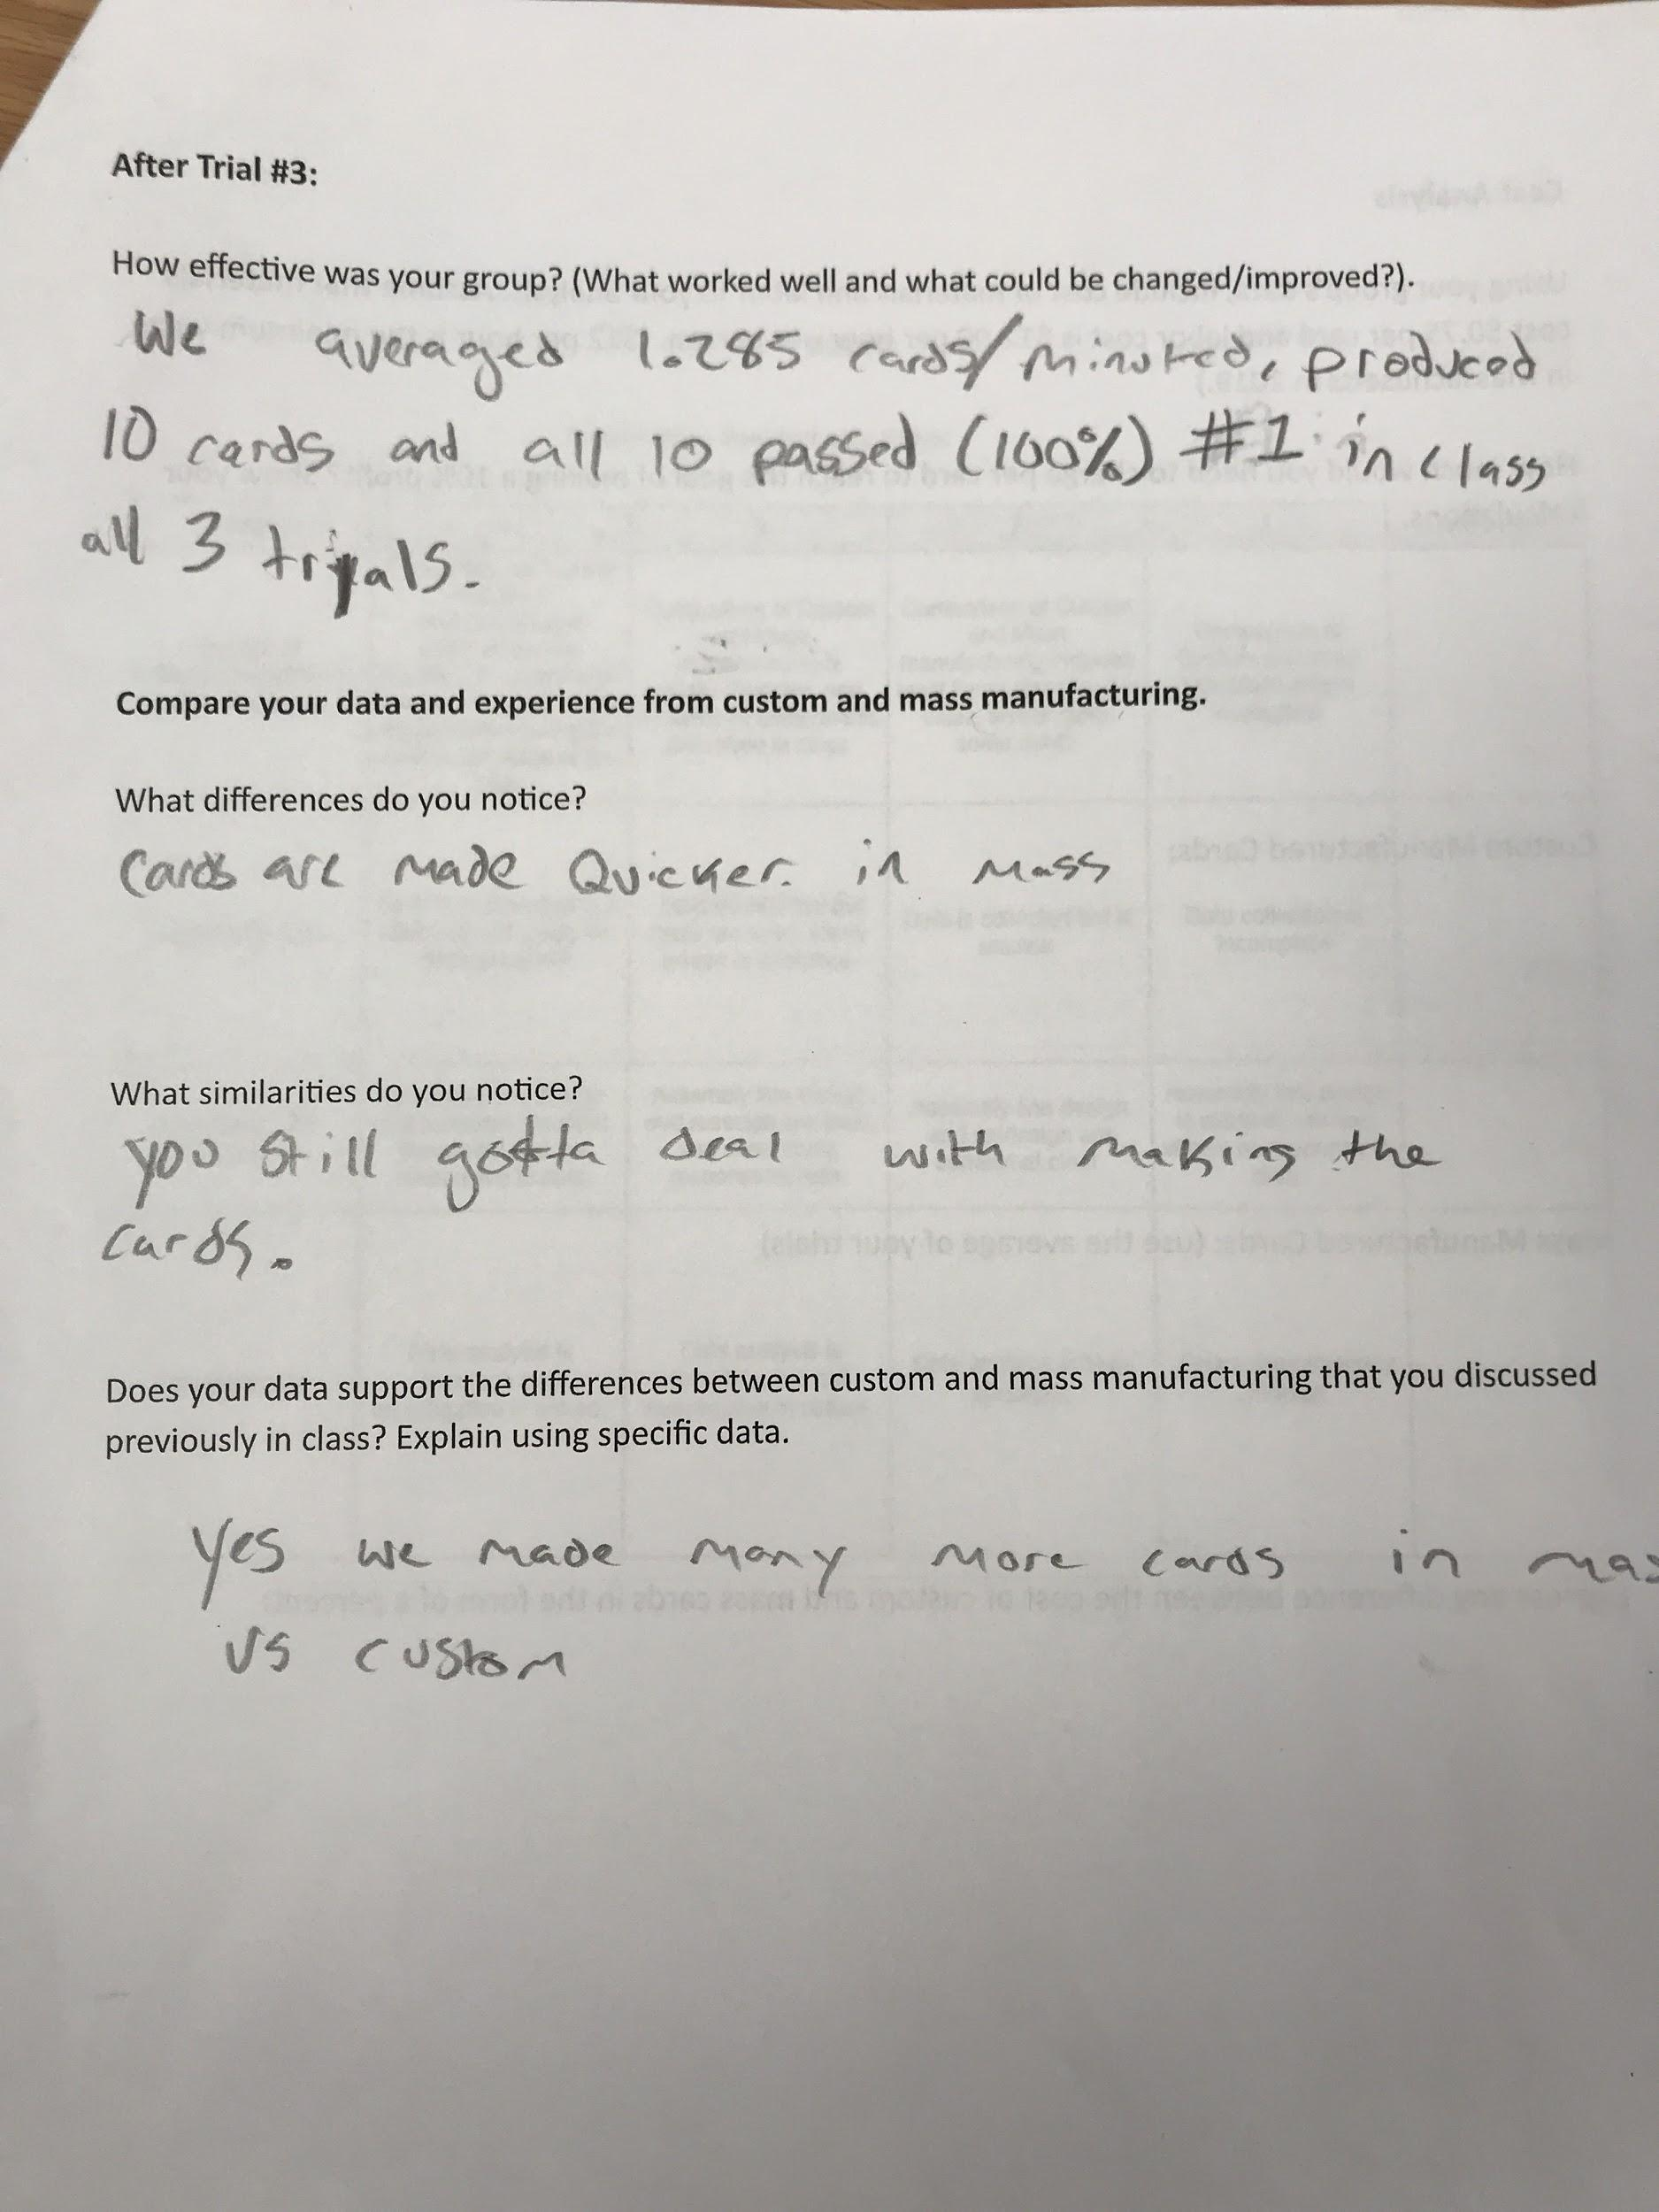 After Trial #3:
How effective was your group? (What worked well and what could be changed/improved?).
We averaged 1.285 cards/minuted, produced
10 cards and all 10 passed (100%) #1 in class
all 3 trials.
Compare your data and experience from custom and mass manufacturing.
What differences do you notice?
Cards are made Quicker in mass
What similarities do you notice?
you still gotta deal with making the
cards.
Does your data support the differences between custom and mass manufacturing that you discussed
previously in class? Explain using specific data.
Yes we made many more cards in mas
vs custom